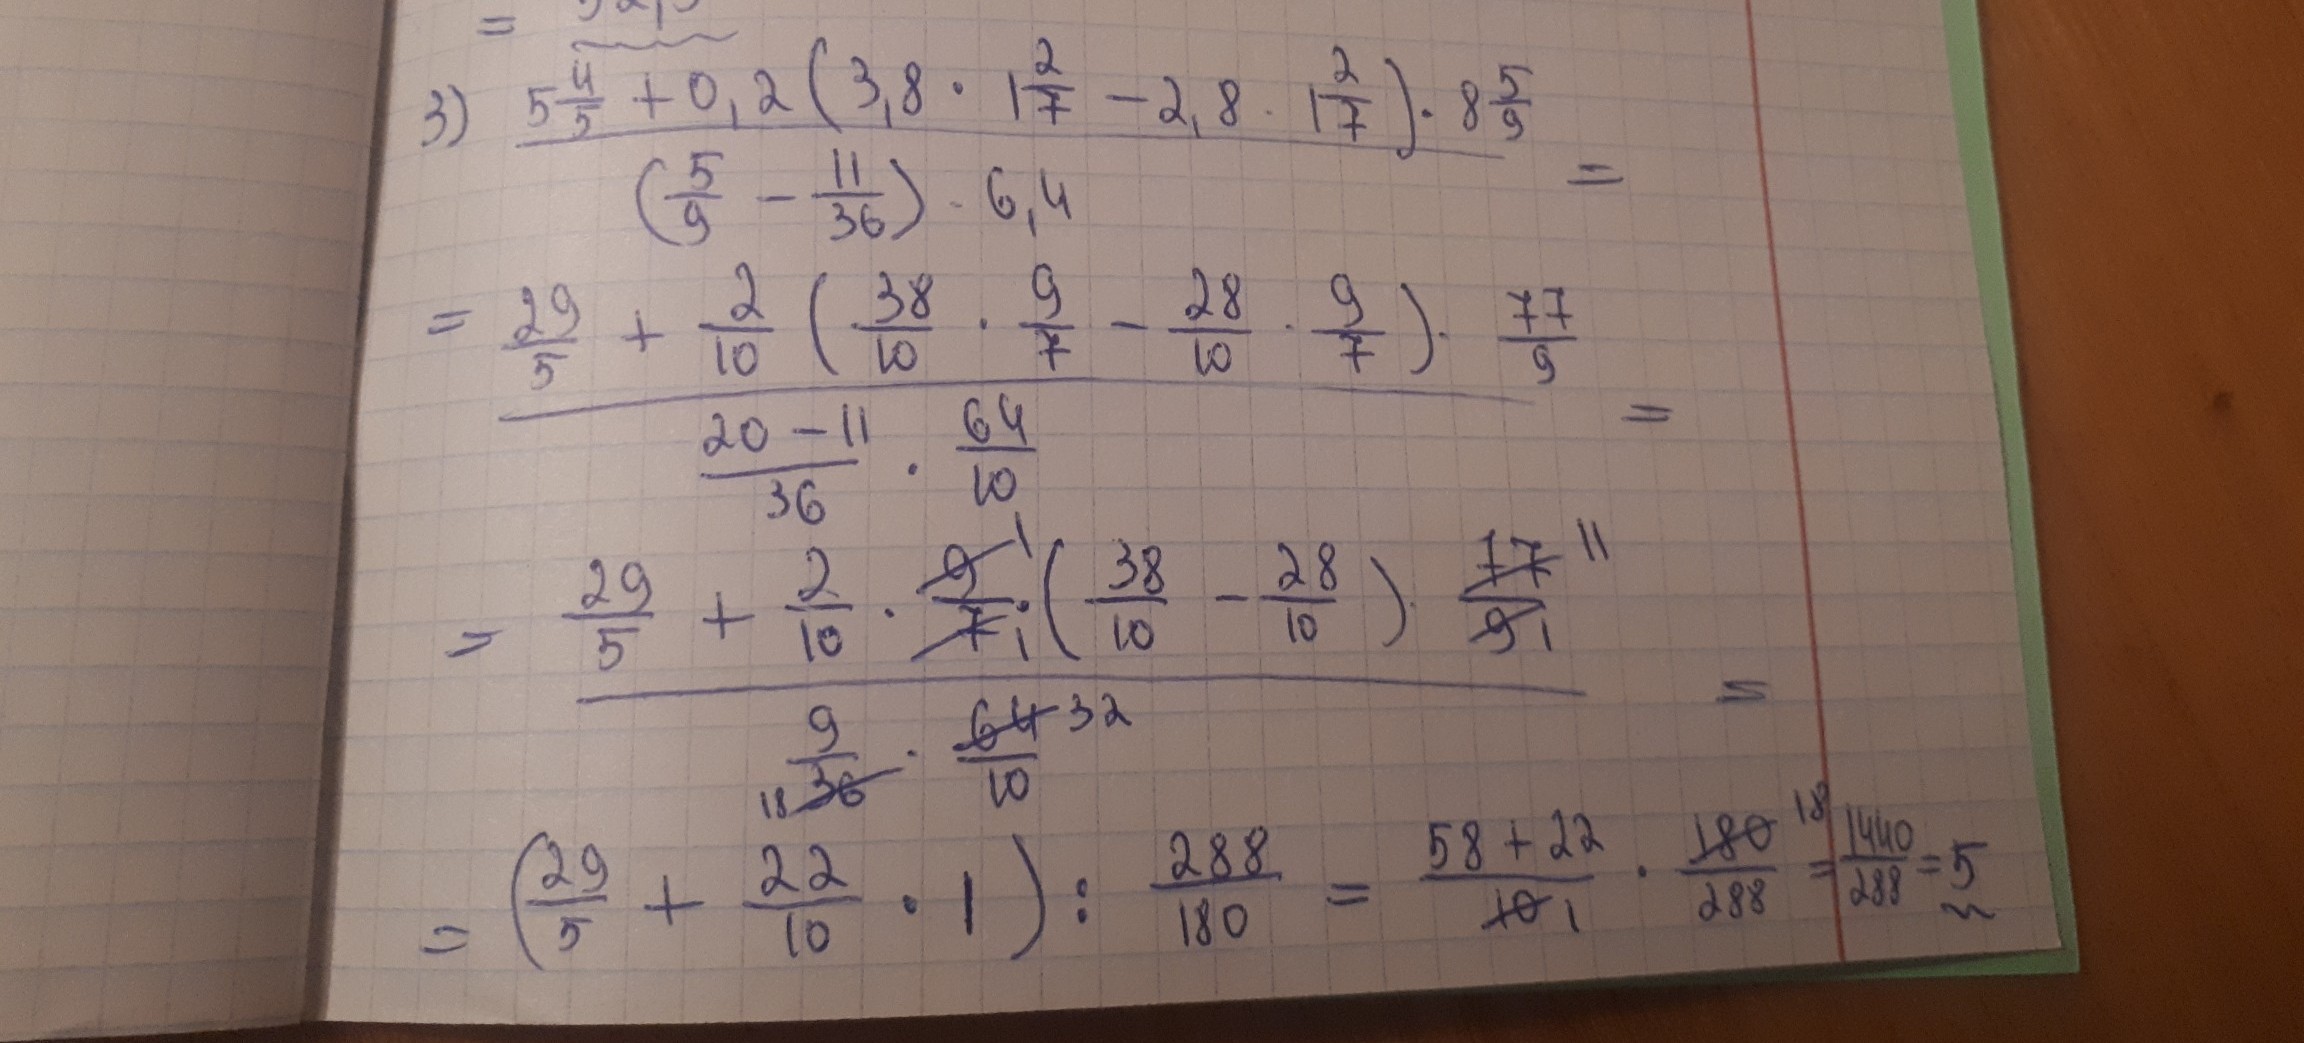 = 
3) (5 4/5 + 0,2 (3,8 · 1 2/7 − 2,8 · 1 2/7) · 8 5/9) / ((5/9 − 11/36) · 6,4) =
= (29/5 + 2/10 (38/10 · 9/7 − 28/10 · 9/7) · 77/9) / ((20 − 11)/36 · 64/10) =
= (29/5 + 2/10 · 9 1/7 1 · (38/10 − 28/10) · 77 11/9 1) / (9/18 36 · 64 32/10) =
= (29/5 + 22/10 · 1) : 288/180 = (58 + 22)/10 1 · 180 18/288 = 1440/288 = 5